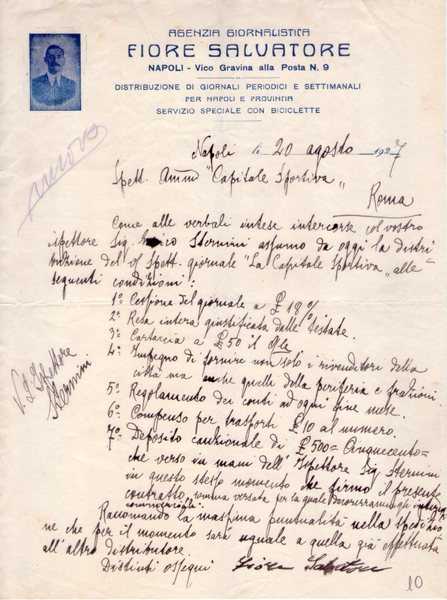 AGENZIA GIORNALISTICA
FIORE SALVATORE
NAPOLI - Vico Gravina alla Posta N. 9
DISTRIBUZIONE DI GIORNALI PERIODICI E SETTIMANALI
PER NAPOLI E PROVINCIA
SERVIZIO SPECIALE CON BICICLETTE
nuovo
Napoli li 20 agosto 1927
Spett. Ammne "Capitale Sportiva"
Roma
Come alle verbali intese intercorse col vostro
Ispettore Sig. Sternini assumo da oggi la distri
buzione del vs/ Spett. giornale "La Capitale Sportiva" alle
seguenti condizioni:
1° Cessione del giornale a £ 18 %
2° Resa intera giustificata dalle testate.
3° Cartaccia a £ 50 il Qle
4° Impegno di fornire non solo i rivenditori della
città ma anche quelli della periferia e frazioni.
5° Regolamento dei conti ad ogni fine mese.
6° Compenso per trasporti £ 10 al numero.
7° Deposito cauzionale di £ 500 = Cinquecento =
che verso in mani dell'Ispettore Sig. Sternini
in questo stesso momento che firmo il presente
contratto, somma versata per la quale
commerciali.
Raccomando la massima puntualità nella spedizio
ne che per il momento sarà uguale a quella già effettuata
all'altro distributore.
Distinti ossequi Fiore Salvatore
V. L'Ispettore
Sternini
10